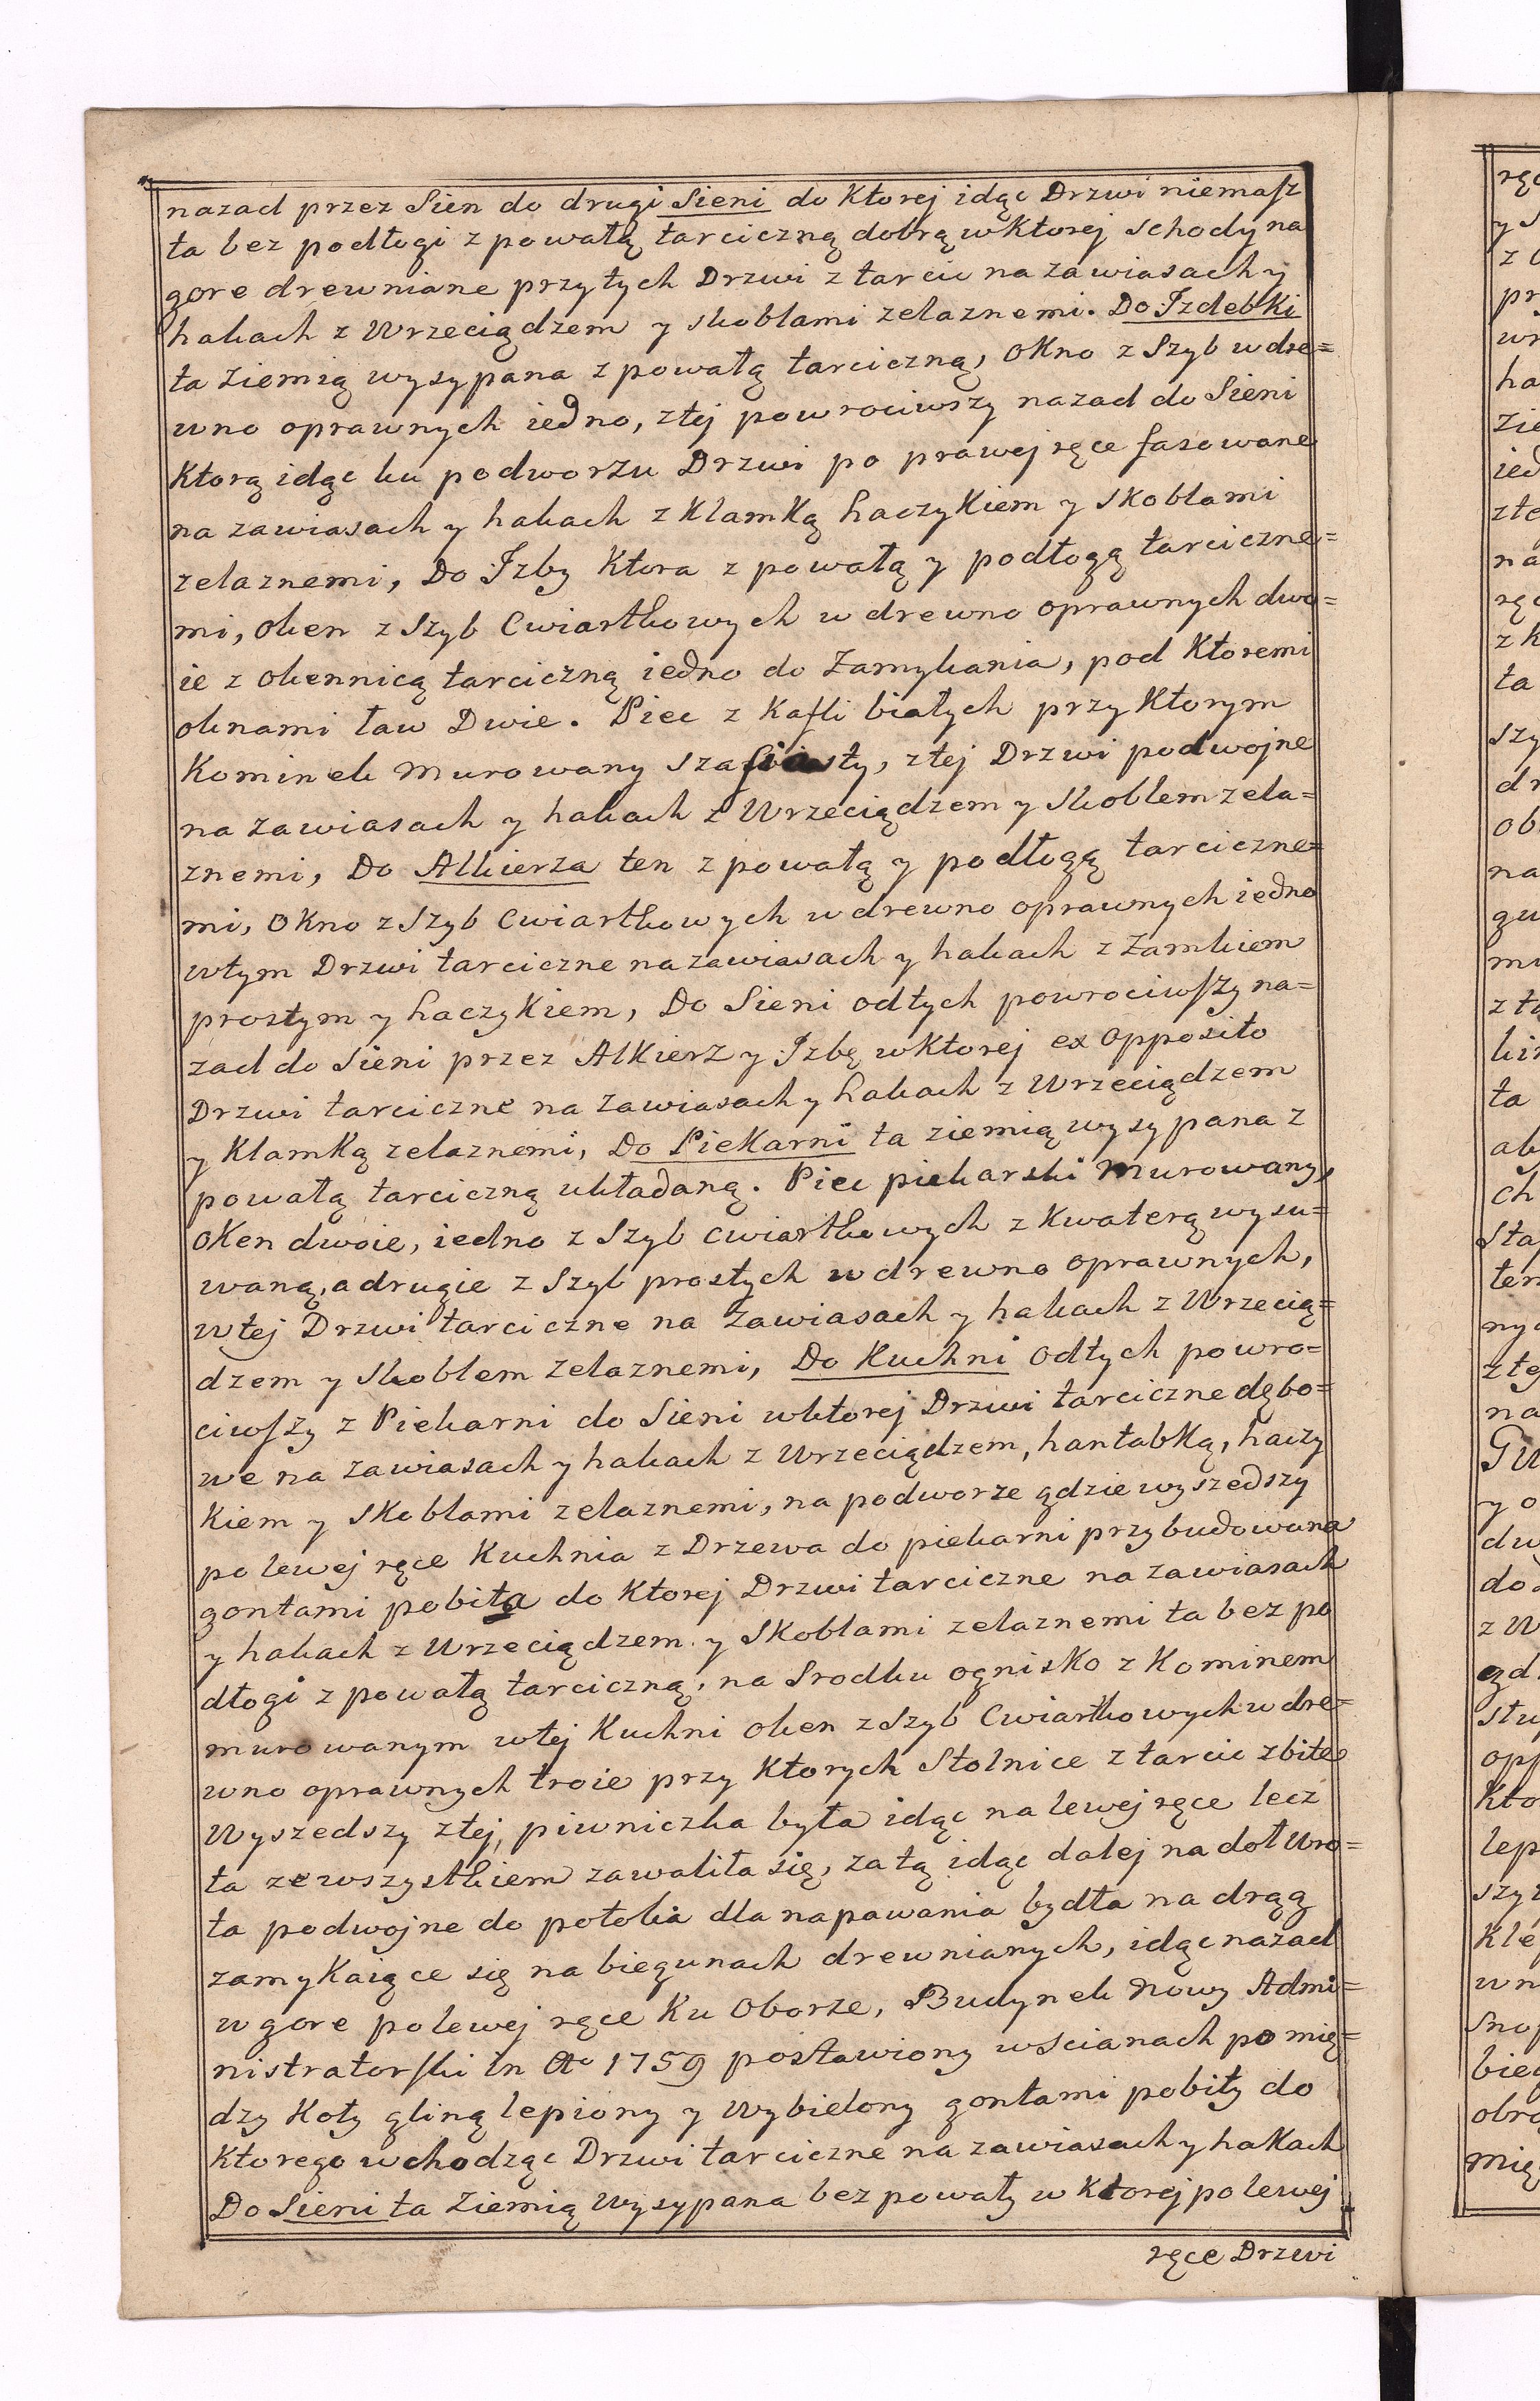 nazad przez Sien do drugi Sieni do Ktorej idąc Drzwi niemasz
ta bez podłogi z powałą tarciczną dobrą w Ktorej Schody na
gore drewniane przy tych Drzwi z tarcic na zawiasach y
hakach z Wrzeciądzem y skoblami zelaznemi. Do Izdebki
ta ziemią wysypana z powałą tarciczną, Okno z Szyb w dre=
wno oprawnych iedno, z tej powrociwszy nazad do Sieni
Ktorą idąc ku podworzu Drzwi po prawej ręce fasowane
na zawiasach y hakach z Klamką haczykiem y Skoblami
zelaznemi, Do Izby Ktora z powałą y podłogą tarciczne=
mi, Oken z Szyb Cwiartkowych w drewno oprawnych dwo=
ie z okennicą tarciczną iedno do Zamykania, pod Ktoremi
oknami ław Dwie. Piec z Kafli białych przy Ktorym
Kominek Murowany szafiasty, z tej Drzwi podwojne
na zawiasach y hakach z Wrzeciądzem y Skoblem zela=
znemi, Do Alkierza ten z powałą y podłogą tarciczne=
mi, Okno z Szyb Cwiartkowych w drewno oprawnych iedno
w tym Drzwi tarciczne na zawiasach y hakach z Zamkiem
prostym y haczykiem, Do Sieni od tych powrociwszy na=
zad do Sieni przez Alkierz y Izbę w Ktorej ex opposito
Drzwi tarciczne na zawiasach y hakach z Wrzeciądzem
y Klamką zelaznemi, Do Piekarni ta ziemią wysypana z
powałą tarciczną układaną. Piec piekarski Murowany,
Oken dwoie, iedno z Szyb cwiartkowych z Kwaterą wysu=
waną, a drugie z Szyb prostych w drewno oprawnych,
w tej Drzwi tarciczne na zawiasach y hakach z Wrzecią=
dzem y Skoblem zelaznemi, Do Kuchni od tych powro=
ciwszy z Piekarni do Sieni w ktorej Drzwi tarciczne dębo=
we na zawiasach y hakach z Wrzeciądzem, hantabką, haczy
Kiem y Skoblami zelaznemi, na podworze gdzie wyszedszy
po lewej ręce Kuchnia z Drzewa do piekarni przybudowana
gontami pobita do Ktorej Drzwi tarciczne na zawiasach
y hakach z Wrzeciądzem y Skoblami zelaznemi ta bez po
dłogi z powałą tarciczną, na Srodku ognisko z Kominem
murowanym w tej Kuchni Oken z Szyb Cwiartkowych w dre=
wno oprawnych troie przy Ktorych Stolnice z tarcic zbite
Wyszedszy z tej, piwniczka była idąc na lewej ręce lecz
ta ze wszystkiem zawaliła się, za tą idąc dalej na doł Wro=
ta podwojne do potoka dla napawania bydła na drąg
zamykaiące się na biegunach drewnianych, idąc nazad
w gore po lewej ręce Ku Oborze, Budynek Nowy Admi=
nistratorski in Ao 1759 postawiony w scianach pomię=
dzy Koły gliną lepiony y Wybielony gontami pobity do
Ktorego wchodząc Drzwi tarciczne na zawiasach y hakach
Do Sieni ta ziemią Wysypana bez powały w Ktorej po lewej
ręce Drzwi